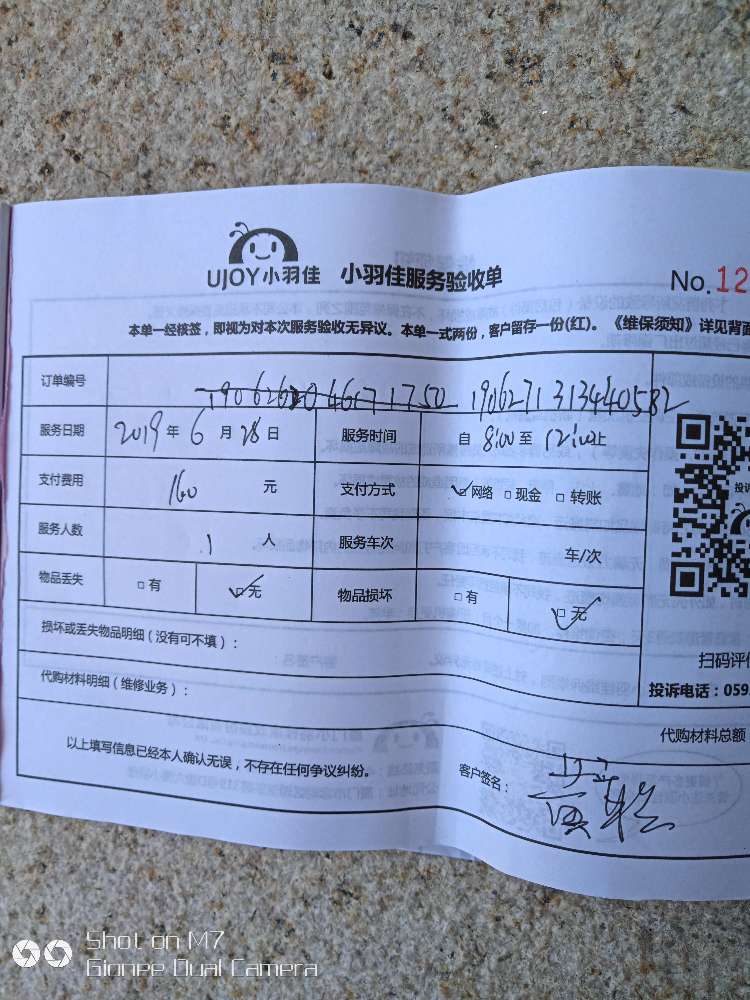 UJOY小羽佳 小羽佳服务验收单 No.12
本单一经核签，即视为对本次服务验收无异议。本单一式两份，客户留存一份(红)。《维保须知》详见背面
订单编号 190627131344058​2
服务日期 2019年6月28日 服务时间 自8:00至12:00止
支付费用 160 元 支付方式 网络 现金 转账
服务人数 1 人 服务车次 车/次
物品丢失 有 无 物品损坏 有 无
投诉
损坏或丢失物品明细（没有可不填）：
扫码评价
代购材料明细（维修业务）：
投诉电话：059
代购材料总额
以上填写信息已经本人确认无误，不存在任何争议纠纷。 客户签名：
Shot on M7
Gionee Dual Camera